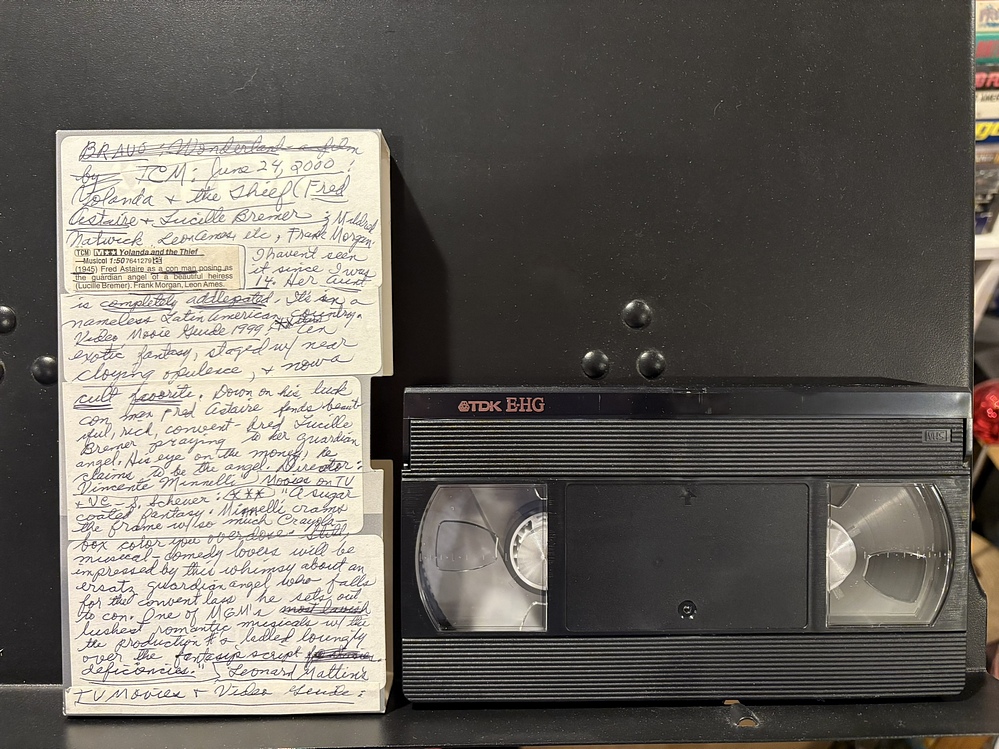 BRAVO: Wonderland - a film
by TCM: June 24, 2000:
Yolanda + the Thief (Fred
Astaire + Lucille Bremer; Mildred
Natwick, Leon Ames, etc, Frank Morgan.
TCM M★★ Yolanda and the Thief
—Musical 1:50 7641279
(1945) Fred Astaire as a con man posing as
the guardian angel of a beautiful heiress
(Lucille Bremer). Frank Morgan, Leon Ames.
I havent seen
it since I was
14. Her aunt
is completely addlepated. It's in a
nameless Latin American country.
Video Movie Guide 1999: "An
exotic fantasy, staged w/ near
cloying opulence, + now a
cult favorite. Down on his luck
con man Fred Astaire finds beaut-
iful, rich, convent bred Lucille
Bremer praying to her guardian
angel. His eye on the money, he
claims to be the angel. Director:
Vincente Minnelli." Movies on TV
+ VC, S. Scheuer: ★★★ "A sugar
coated fantasy. Minnelli crams
the frame w/ so much Crayola-
box color you overdose. Still,
musical-comedy lovers will be
impressed by this whimsy about an
ersatz guardian angel who falls
for the convent lass he sets out
to con. One of MGM's most lavish
lushest romantic musicals w/ the
the production #'s ladled lovingly
over the fantasy's script
deficiencies." Leonard Maltin's
TV Movies + Video Guide:
TDK E-HG
VHS